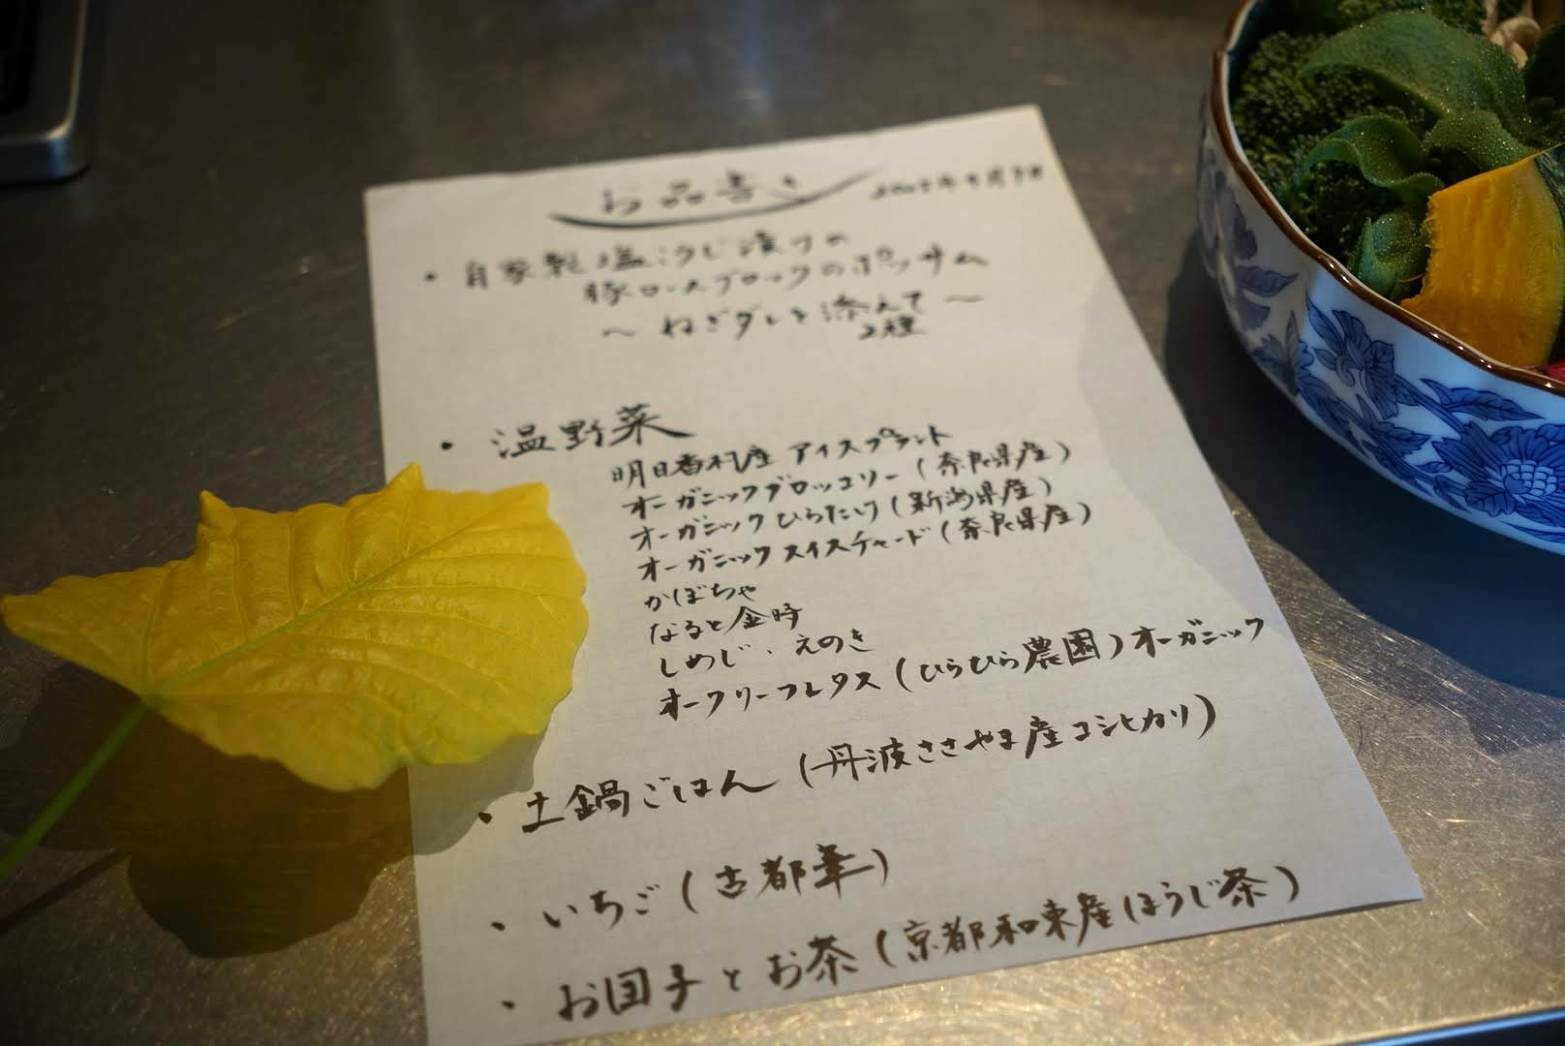 お品書き
・自家製塩こうじ漬けの
豚ロースブロックのポッサム
〜ねぎダレを添えて〜
2種
・温野菜
明日香村産 アイスプラント
オーガニックブロッコリー(奈良県産)
オーガニックひらたけ(新潟県産)
オーガニックスイスチャード(奈良県産)
かぼちゃ
なると金時
しめじ、えのき
オークリーフレタス(ひらひら農園)オーガニック
・土鍋ごはん(丹波ささやま産コシヒカリ)
・いちご(古都華)
・お団子とお茶(京都和東産ほうじ茶)